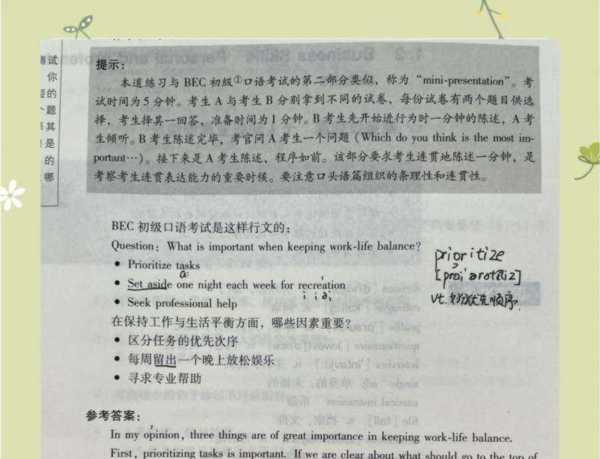 提示：
本道练习与 BEC 初级①口语考试的第二部分类似，称为“mini-presentation”。考
试时间为5分钟。考生A与考生B分别拿到不同的试卷，每份试卷有两个题目供选
择，考生择其一回答，准备时间为1分钟。B考生先开始进行为时一分钟的陈述，A考
生倾听。B考生陈述完毕，考官问A考生一个问题（Which do you think is the most im-
portant…）。接下来是A考生陈述，程序如前。该部分要求考生连贯地陈述一分钟，是
考察考生连贯表达能力的重要时候。要注意口头语篇组织的条理性和连贯性。
试
你
的
题
其
是
的
哪
BEC 初级口语考试是这样行文的：
Question: What is important when keeping work-life balance?
• Prioritize tasks
• Set aside one night each week for recreation
• Seek professional help
prioritize
vt.
优先顺序.
在保持工作与生活平衡方面，哪些因素重要？
• 区分任务的优先次序
• 每周留出一个晚上放松娱乐
• 寻求专业帮助
参考答案：
In my opinion, three things are of great importance in keeping work-life balance.
First, prioritizing tasks is important. If we are clear about what should go to the top of